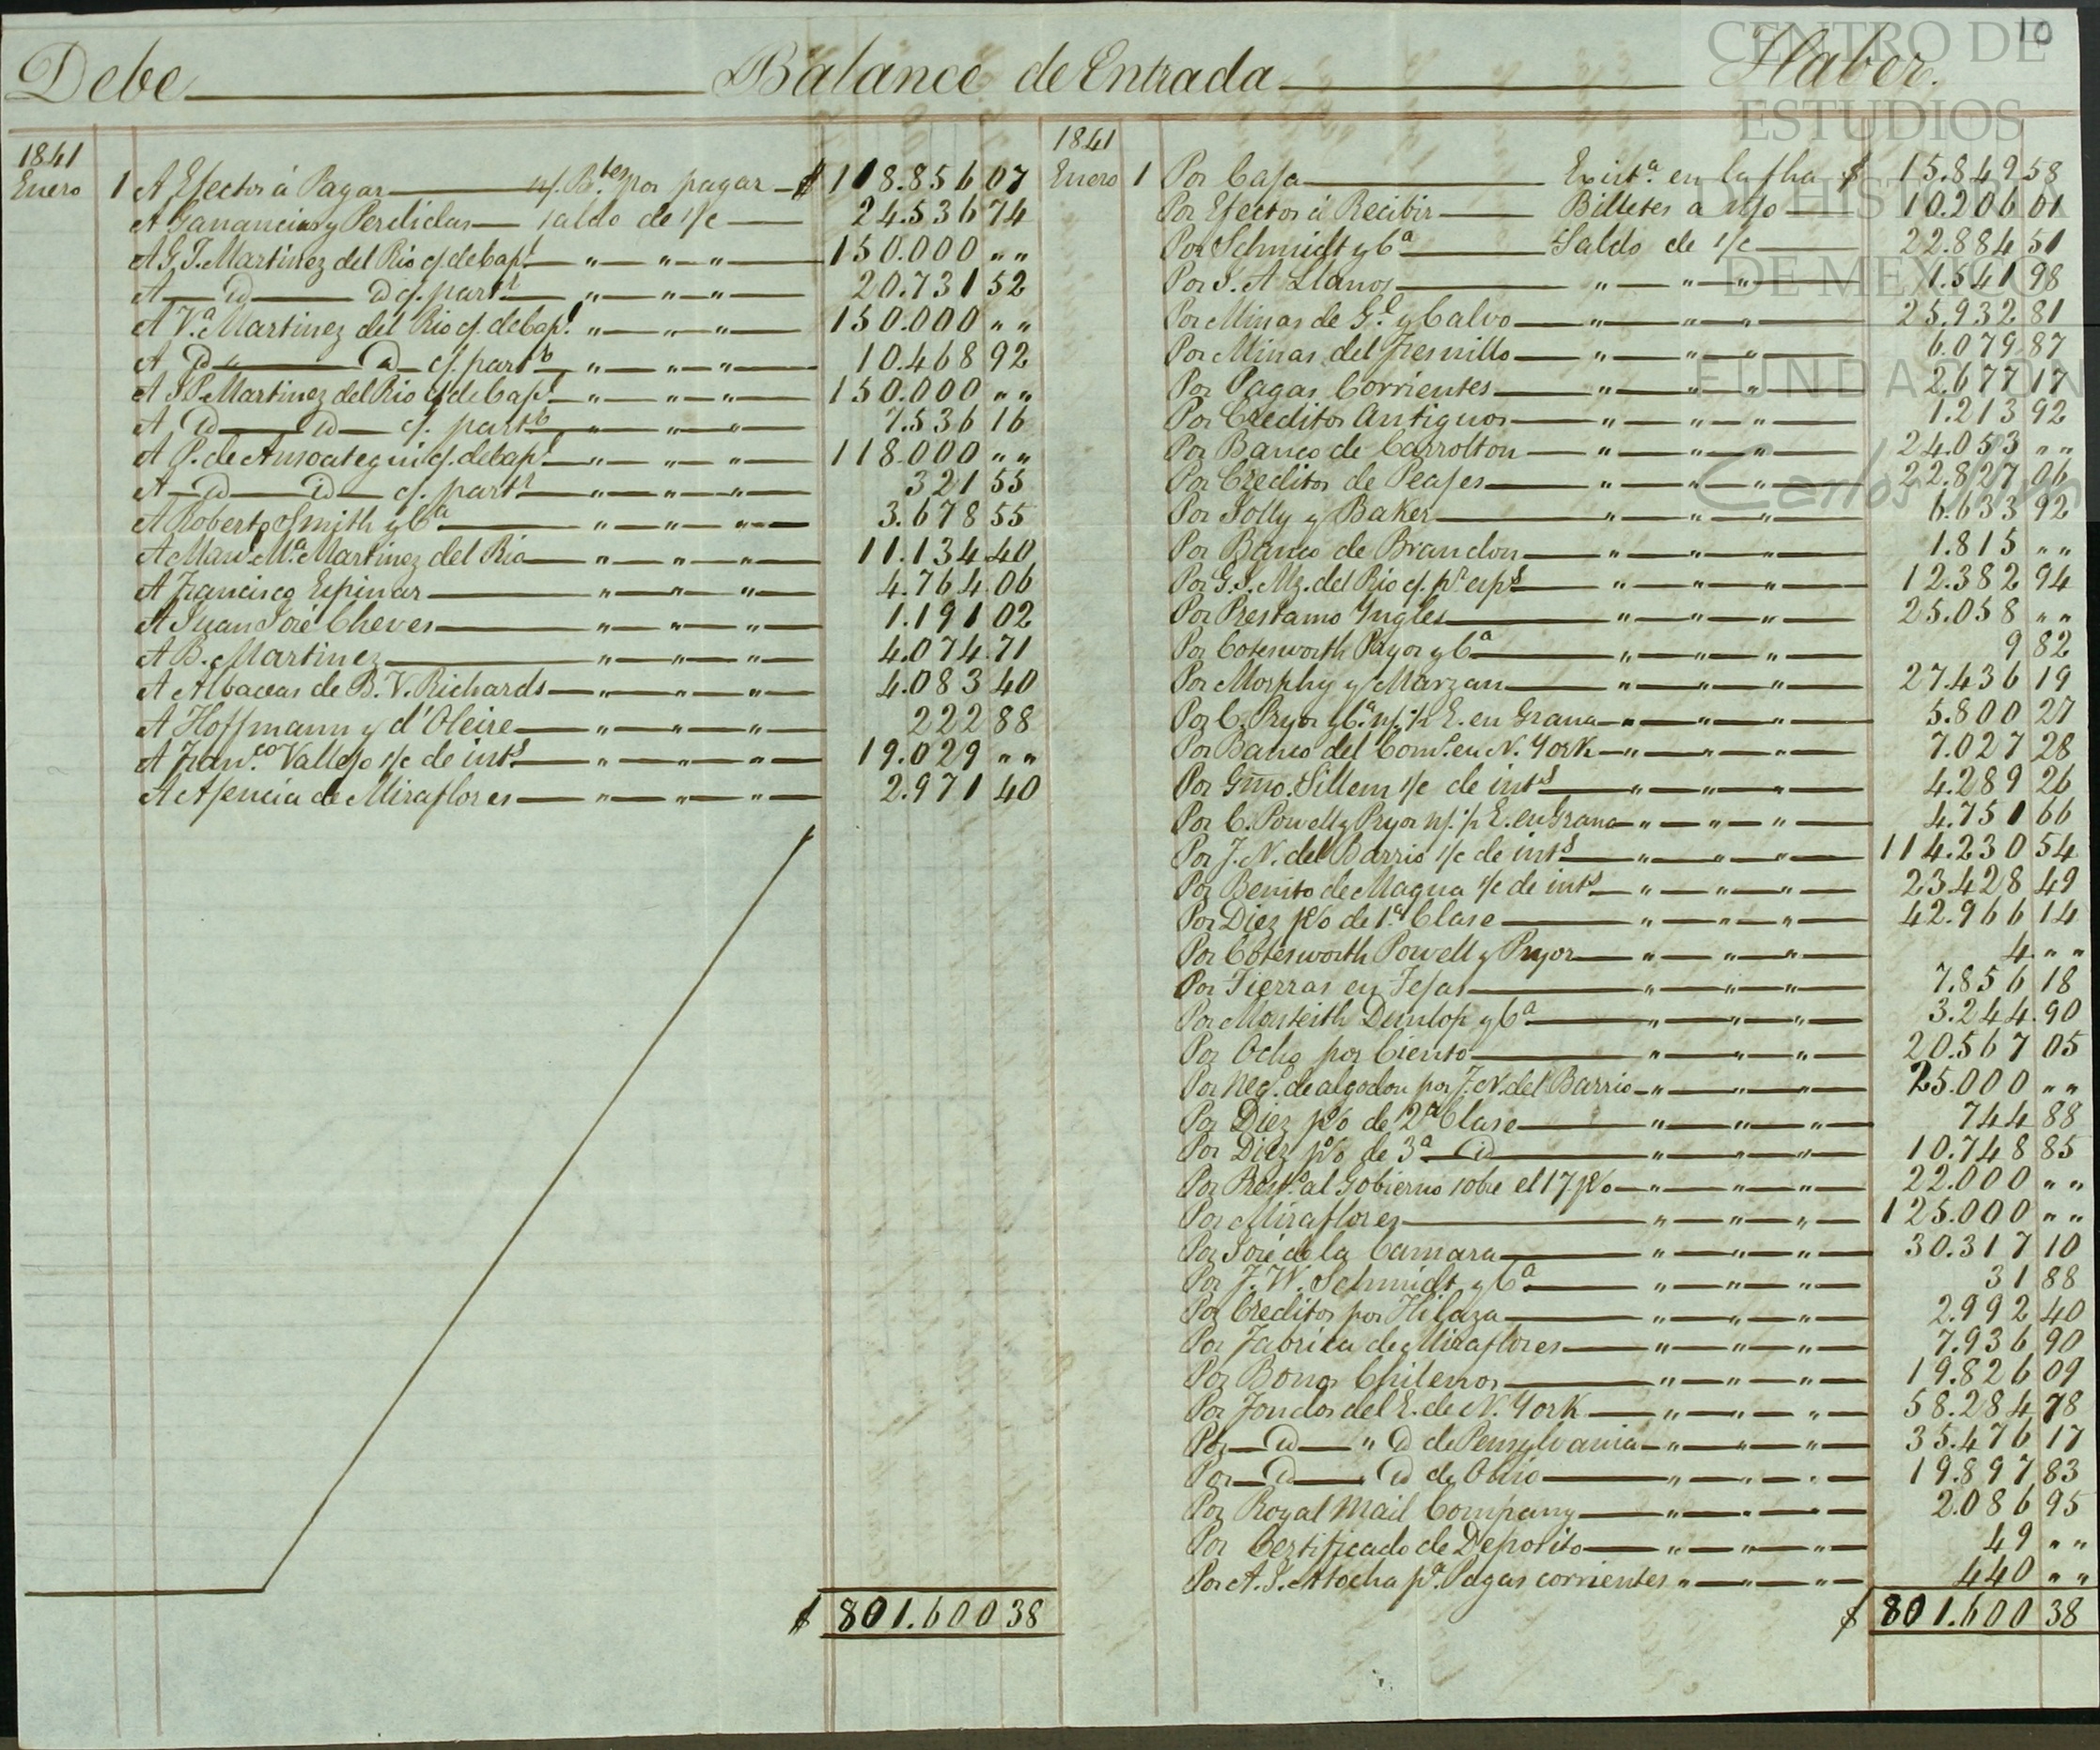 10
Debe Balance de Entrada Haber.
1841
Enero 1 A Efectos á Pagar n/. B.tes por pagar $ 118.856 07
A Ganancias y Perdidas saldo de s/c 24.536 74
A G. J. Martinez del Rio c/. de Cap.l " " " 150.000 " "
A id id c/. part.r " " " 20.731 52
A V.a Martinez del Rio c/. de Cap.l " " " 150.000 " "
A id id c/. part.r " " " 10.468 92
A J P Martinez del Rio c/ de Cap.l " " " 150.000 " "
A id id c/. part.r " " " 7.536 16
A P. de Ansoategui c/. de Cap.l " " " 118.000 " "
A id id c/. part.r " " " 321 55
A Roberto Smith y C.a " " " 3.678 55
A Man.l M.a Martinez del Rio " " " 11.134 40
A Francisco Espinar " " " 4.764 06
A Juan José Cheves " " " 1.191 02
A B. Martinez " " " 4.074 71
A Albaceas de B. V. Richards " " " 4.083 40
A Hoffmann y d'Oleire " " " 222 88
A Fran.co Vallejo s/c de int.s " " " 19.029 " "
A Agencia de Miraflores " " " 2.971 40
$ 801.600 38
1841
Enero 1 Por Caja Exist.a en la fha $ 15.849 58
Por Efectos á Recibir Billetes a n/o 10.206 01
Por Schmidt y C.a Saldo de s/c 22.884 51
Por J. A Llanos " " " 1.541 98
Por Minas de G.e y Calvo " " " 25.932 81
Por Minas del Fresnillo " " " 6.079 87
Por Pagas Corrientes " " " 2.677 17
Por Creditos Antiguos " " " 1.213 92
Por Banco de Carrolton " " " 24.053 " "
Por Creditos de Peajes " " " 22.827 06
Por Jolly y Baker " " " 6.633 92
Por Banco de Brandon " " " 1.815 " "
Por G. J. Mz. del Rio c/. p.r esp.l " " " 12.382 94
Por Prestamo Ingles " " " 25.058 " "
Por Cotesworth Pryor y C.a " " " 9 82
Por Morphy y Marzan " " " 27.436 19
Por C. Pryor y C.a n/. c/. E. en Grana " " " 5.800 27
Por Banco del Com.o en N. York " " " 7.027 28
Por Gmo. Sillem s/c de int.s " " " 4.289 26
Por C. Powell y Pryor n/. c/. E. en Grana " " " 4.751 66
Por J. N. del Barrio s/c de int.s " " " 114.230 54
Por Benito de Magua s/c de int.s " " " 23.428 49
Por Diez p% de 1.a Clase " " " 42.966 14
Por Cotesworth Powell y Pryor " " " 4 " "
Por Tierras en Tejas " " " 7.856 18
Por Monteith Dunlop y C.a " " " 3.244 90
Por Ocho por Ciento " " " 20.567 05
Por Neg.o de algodon por J. N. del Barrio " " " 25.000 " "
Por Diez p% de 2.a Clase " " " 744 88
Por Diez p% de 3.a id " " " 10.748 85
Por Prest.o al Gobierno sobre el 17 p% " " " 22.000 " "
Por Miraflores " " " 125.000 " "
Por José de la Camara " " " 30.317 10
Por J. W. Schmidt y C.a " " " 31 88
Por Creditos por Hilaza " " " 2.992 40
Por Fabrica de Miraflores " " " 7.936 90
Por Bonos Chilenos " " " 19.826 09
Por Fondos del E. de N. York " " " 58.284 78
Por id " id de Pensylvania " " " 35.476 17
Por id id de Ohio " " " 19.897 83
Por Royal Mail Company " " " 2.086 95
Por Certificado de Deposito " " " 49 " "
Por A. J. Atocha p.r Pagas corrientes " " " 440 " "
$ 801.600 38
CENTRO DE
ESTUDIOS
DE HISTORIA
DE MEXICO
FUNDACIÓN
Carlos Slim